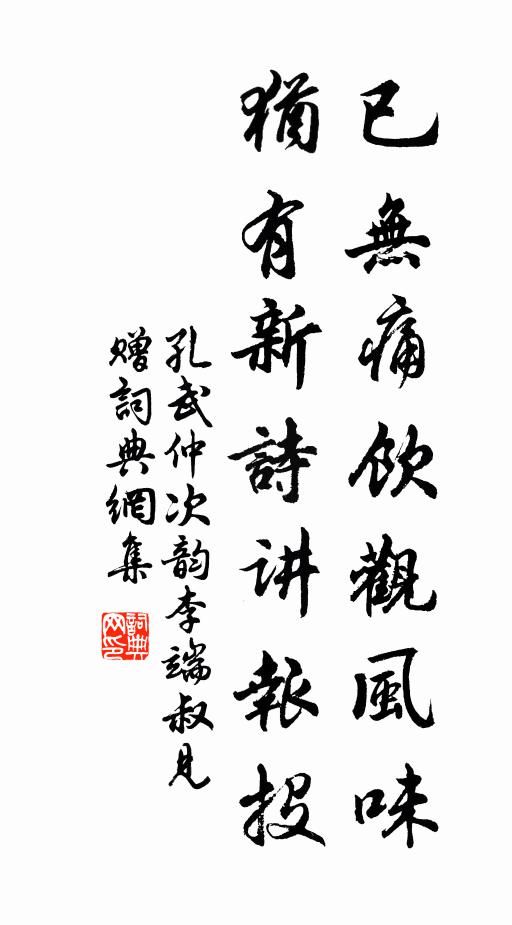 已無痛飲觀風味
猶有新詩讲報投
孔武仲次韵李端叔見
贈詞典網集
詞典网印